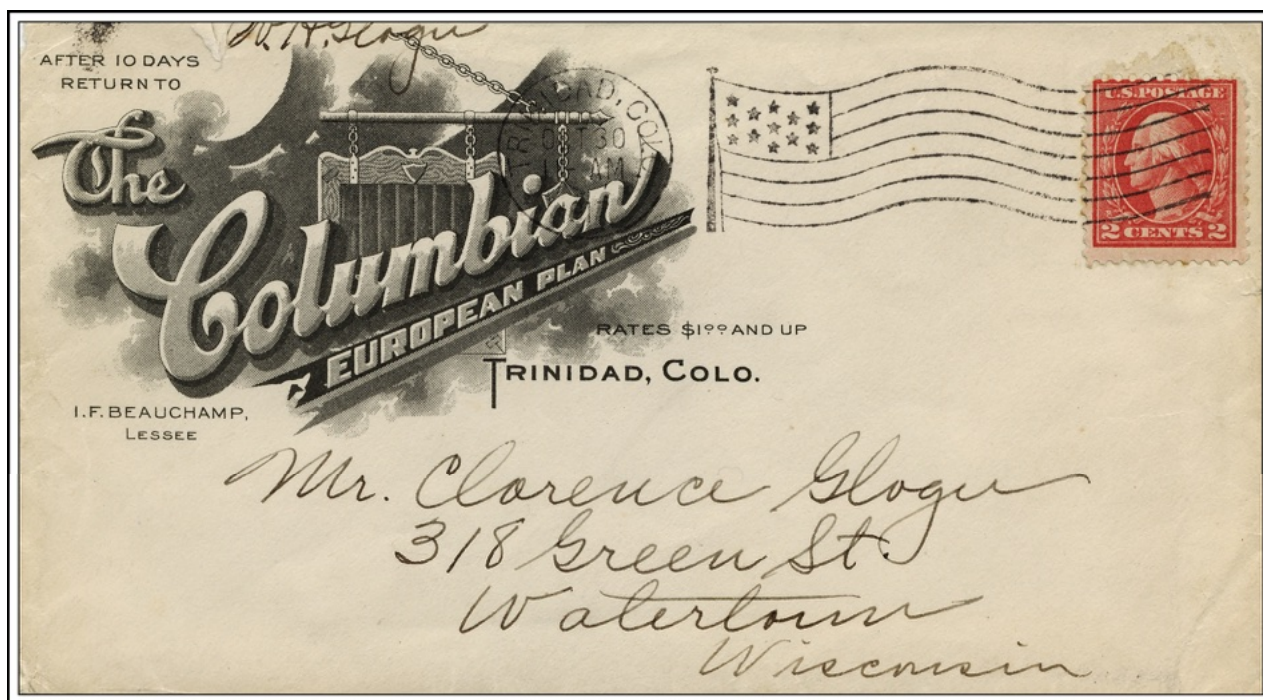 W. H. Glogu
AFTER 10 DAYS
RETURN TO
The
Columbian
EUROPEAN PLAN
RATES $1⁰⁰ AND UP
TRINIDAD, COLO.
I. F. BEAUCHAMP,
LESSEE
TRINIDAD, COLO.
OCT 30
AM
U.S. POSTAGE
2 CENTS 2
Mr. Clarence Glogu
318 Green St.
Watertown
Wisconsin